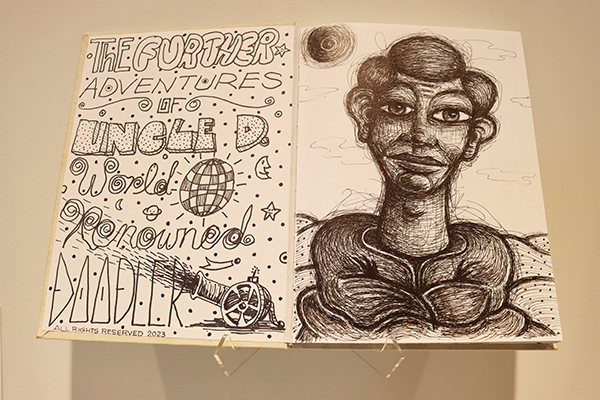 THE FURTHER
ADVENTURES
OF
UNCLE D.
World
Renowned
DOODLER
ALL RIGHTS RESERVED 2023